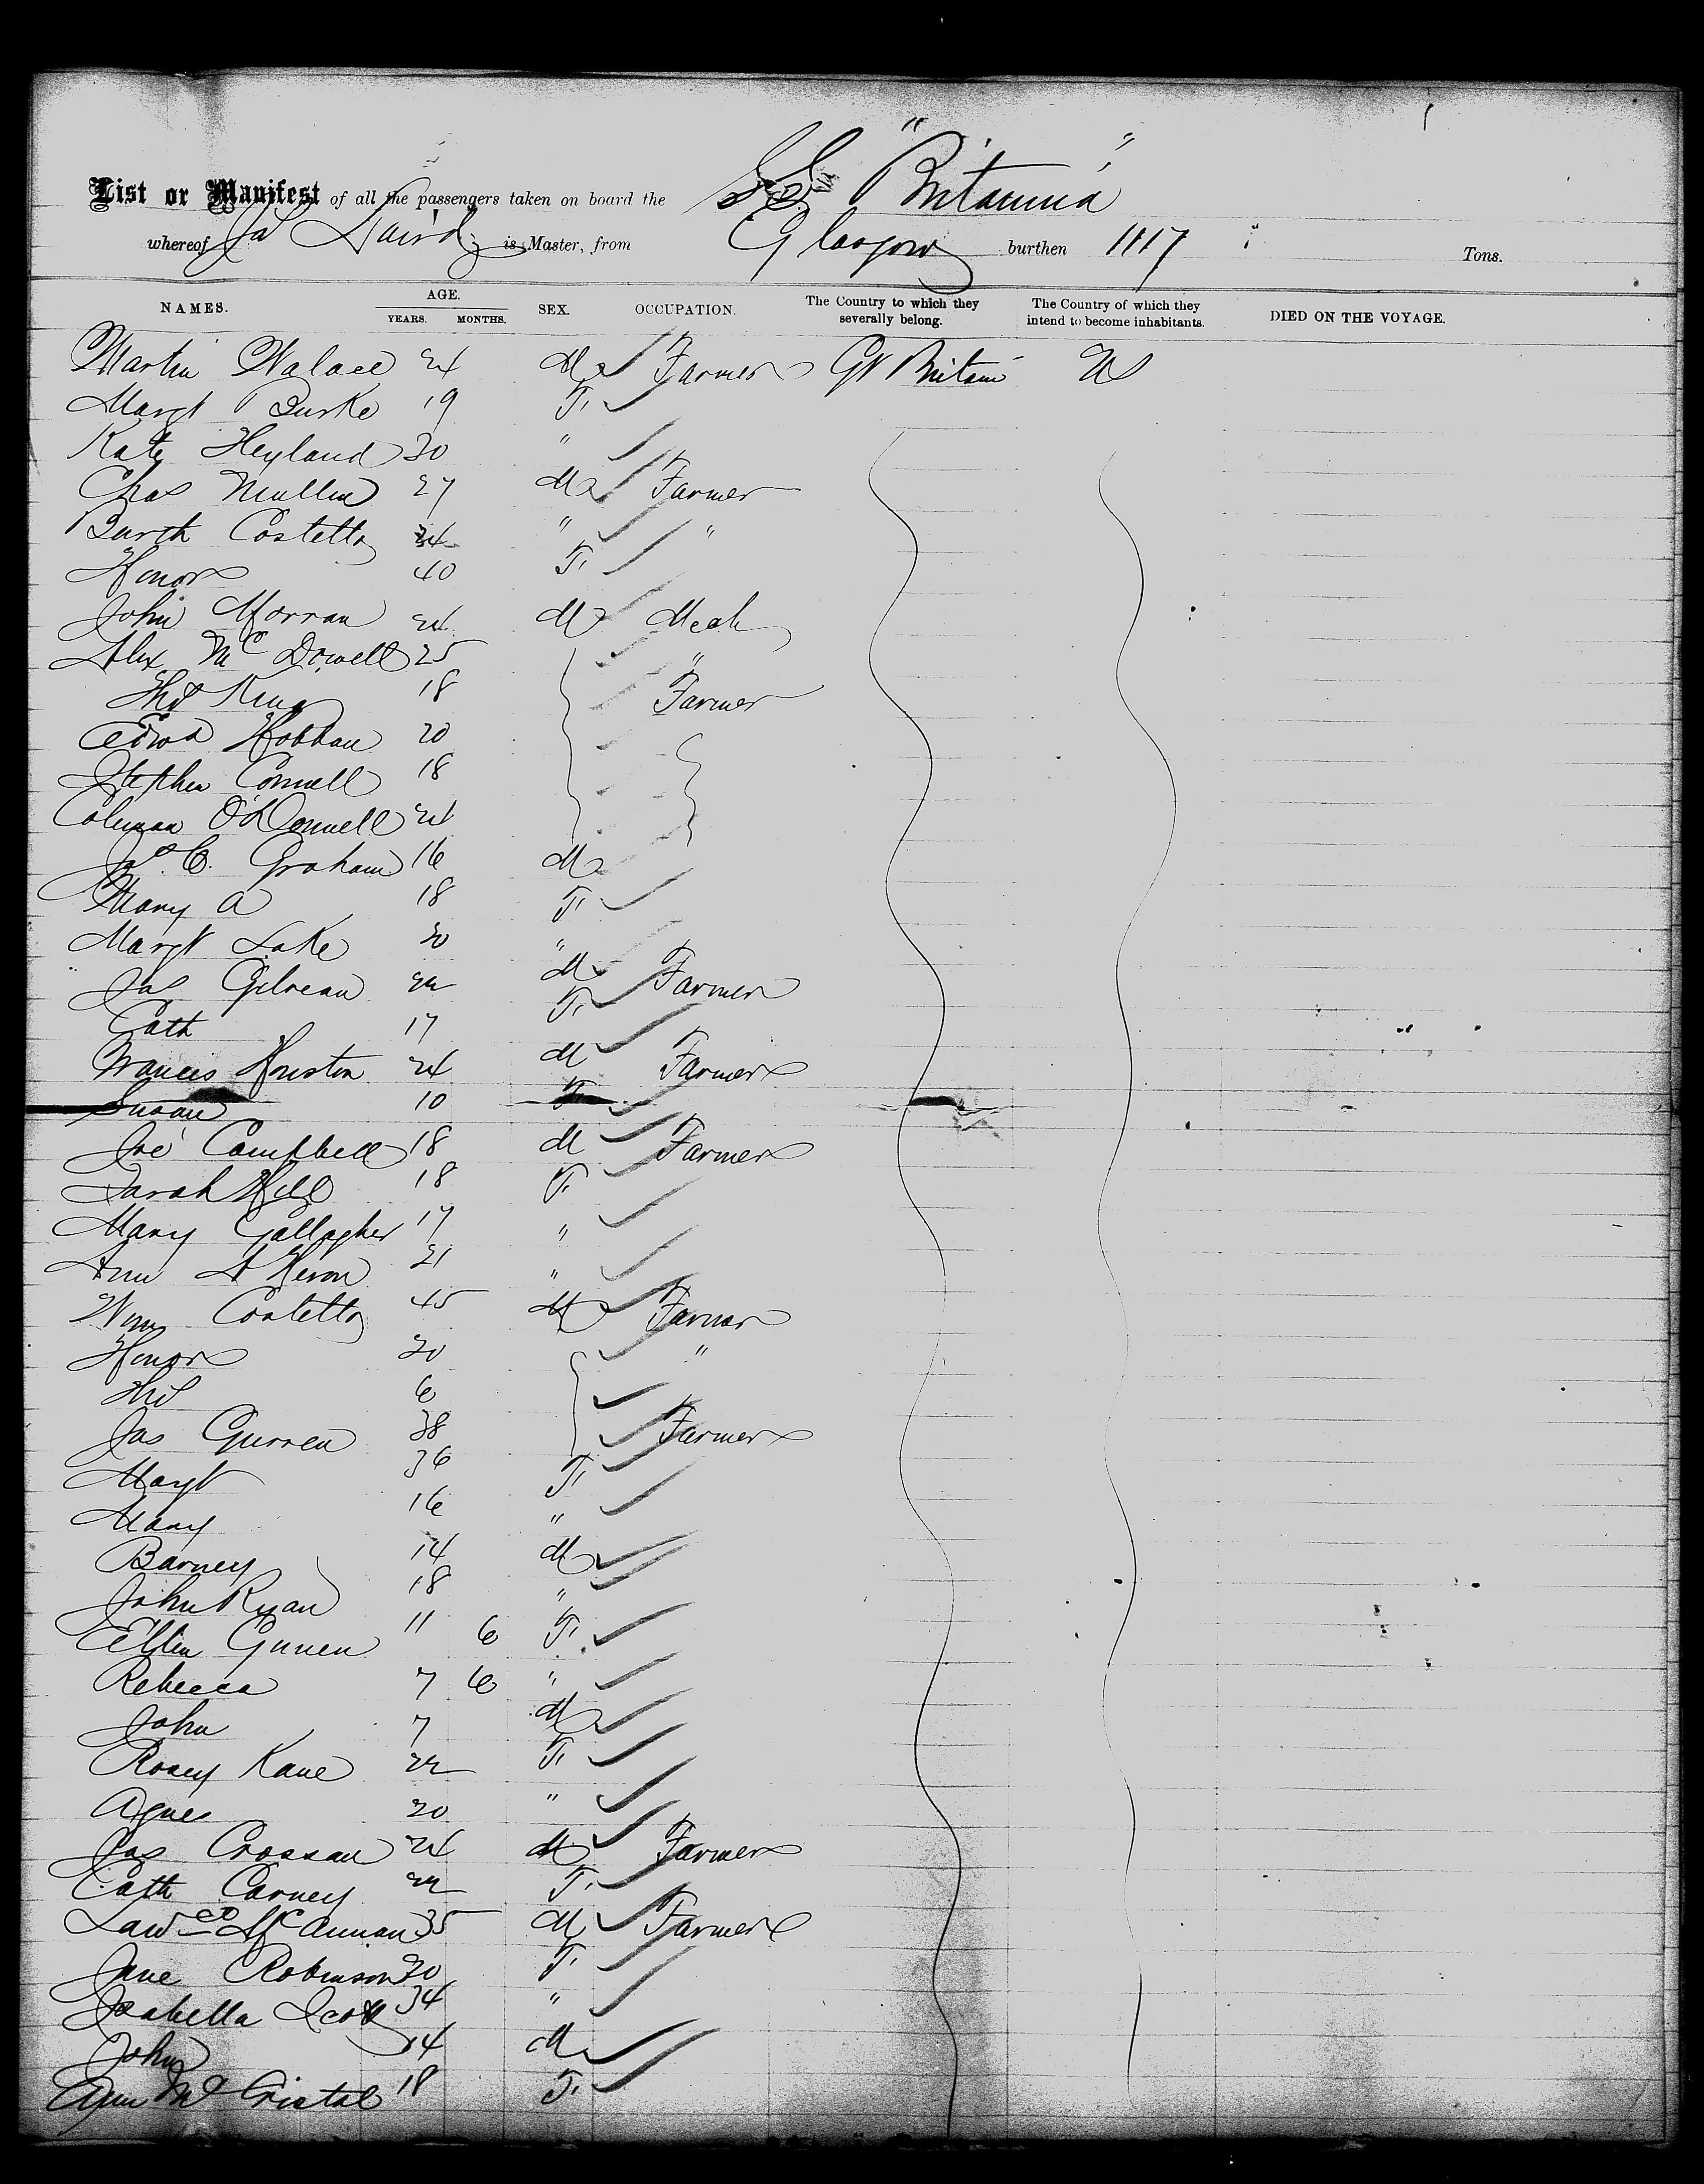 List or Manifest of all the passengers taken on board the SS "Britannia"
whereof Jas Laird is Master, from Glasgow burthen 1117 Tons.
NAMES. AGE. YEARS. MONTHS. SEX. OCCUPATION. The Country to which they severally belong. The Country of which they intend to become inhabitants. DIED ON THE VOYAGE.
Martin Walace 24 M Farmer Gt Britain US
Margt Burke 19 F
Kate Heyland 30 "
Chas Mullin 27 M Farmer
Barth Costello 34 " "
Honor 40 F
John Morran 24 M Mech
Alex McDowell 25 "
Thos King 18 Farmer
Edwd Hobban 20
Stephen Connell 18
Coleman O'Donnell 24
Jas C. Graham 16 M
Mary A 18 F
Margt Lake 30 "
Jas Gilrean 22 M Farmer
Cath 17 F
Francis Houston 24 M Farmer
Susan 10 F
Joe Campbell 18 M Farmer
Sarah Hill 18 F
Mary Gallagher 17 "
Ann 21 "
Wm Costello 45 M Farmer
Honor 30 "
Thos 6
Jas Gurren 38 Farmer
Margt 36 F
Mary 16 "
Barney 14 M
John Ryan 18 "
Ellen Gurren 11 6 F
Rebecca 7 6 "
John 7 M
Rosey Kane 22 F
Agnes 20 "
Jas Crossan 24 M Farmer
Cath Carney 22 F
Lawce McAnnan 35 M Farmer
Jane Robinson 30 F
Isabella Scott 34 "
John 14 M
Ann McCristal 18 F